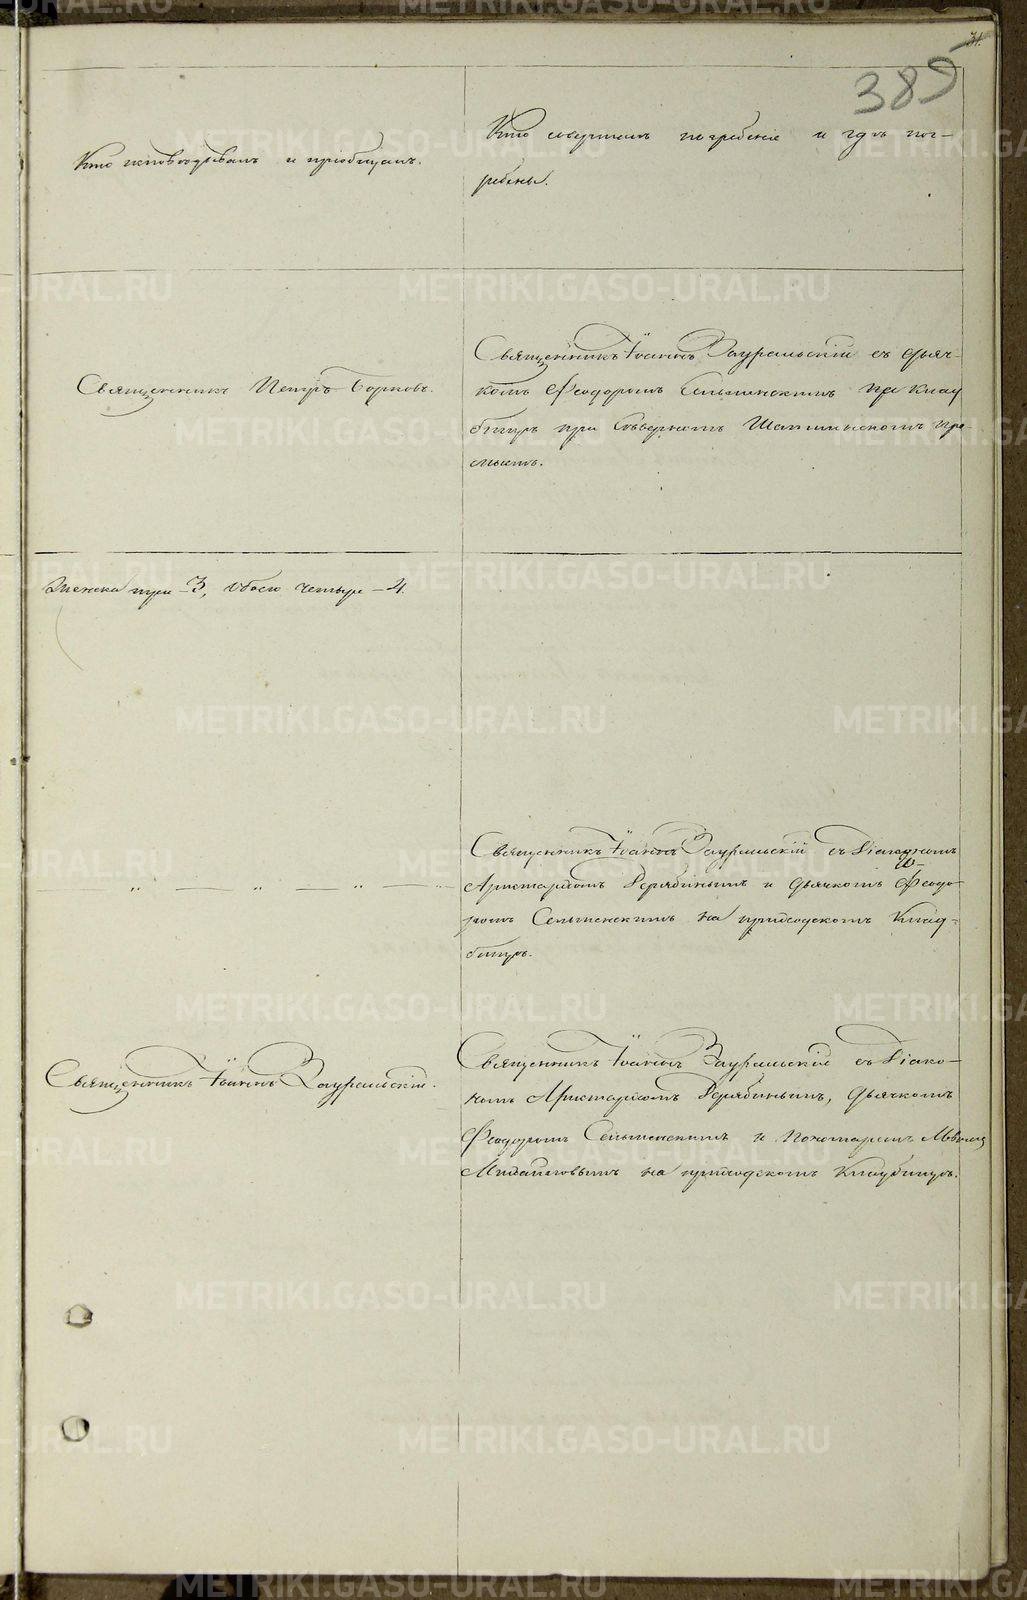 31.
385
Кто исповѣдывалъ и пріобщалъ.
Кто совершалъ погребеніе и гдѣ пог-
ребены.
Священникъ Петръ Борковъ.
Священникъ Іоаннъ Зауральскій съ дьяч-
комъ Ѳеодоромъ Сельменскимъ на клад
бищѣ при Сѣверномъ Шаталинскомъ про-
мыслѣ.
Женска три - 3, обоего четыре - 4.
Священникъ Іоаннъ Зауральскій съ Діакономъ
" — " — " —
Аристархомъ Дерябинымъ и дьячкомъ Ѳеодо-
ромъ Сельменскимъ на приходскомъ клад-
бищѣ.
Священникъ Іоаннъ Зауральскій.
Священникъ Іоаннъ Зауральскій съ Діако-
номъ Аристархомъ Дерябинымъ, дьячкомъ
Ѳеодоромъ Сельменскимъ и Пономаремъ
Михайловымъ на приходскомъ кладбищѣ.
METRIKI.GASO-URAL.RU